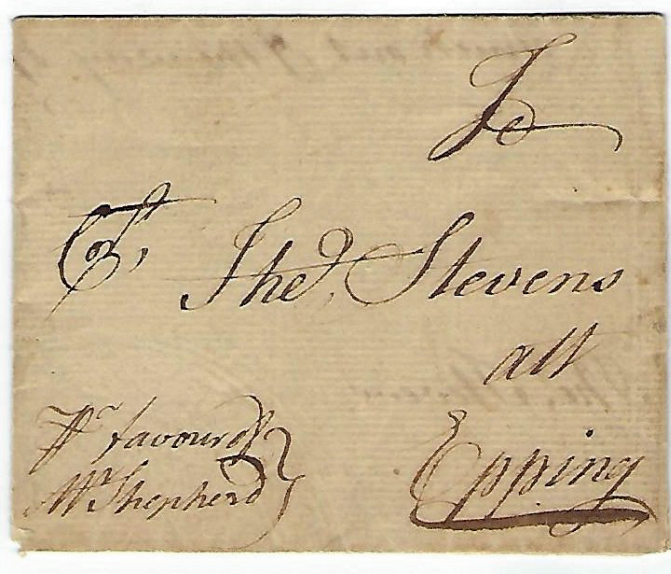 To
Theo. Stevens
att
Epping
Pr favour of
Mr. Shepherd